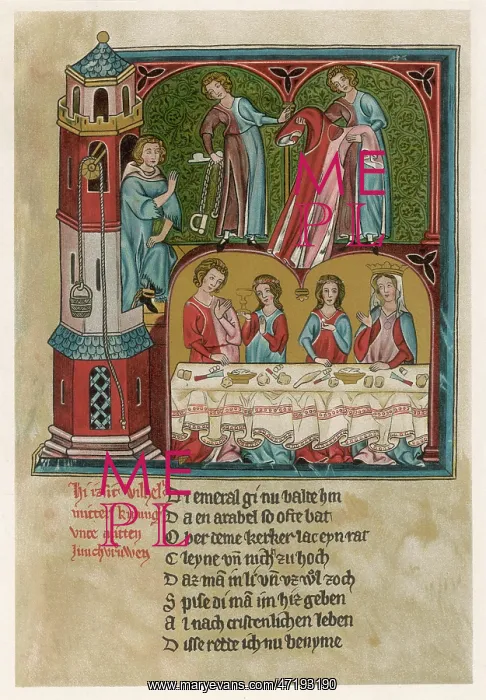 ME
PL
ME
PL
hi izit
mitter
vnte
D emeral gi nu balte hin
D a en arabel so ofte bat
O ver deme kerker lac eyn rat
C leyne vn̄ nich zu hoch
D az mā in li vn̄ vz zoch
S pise di mā im hiz geben
A l nach cristenlichen leben
D isse rette ich nu benyme
www.maryevans.com/47193190